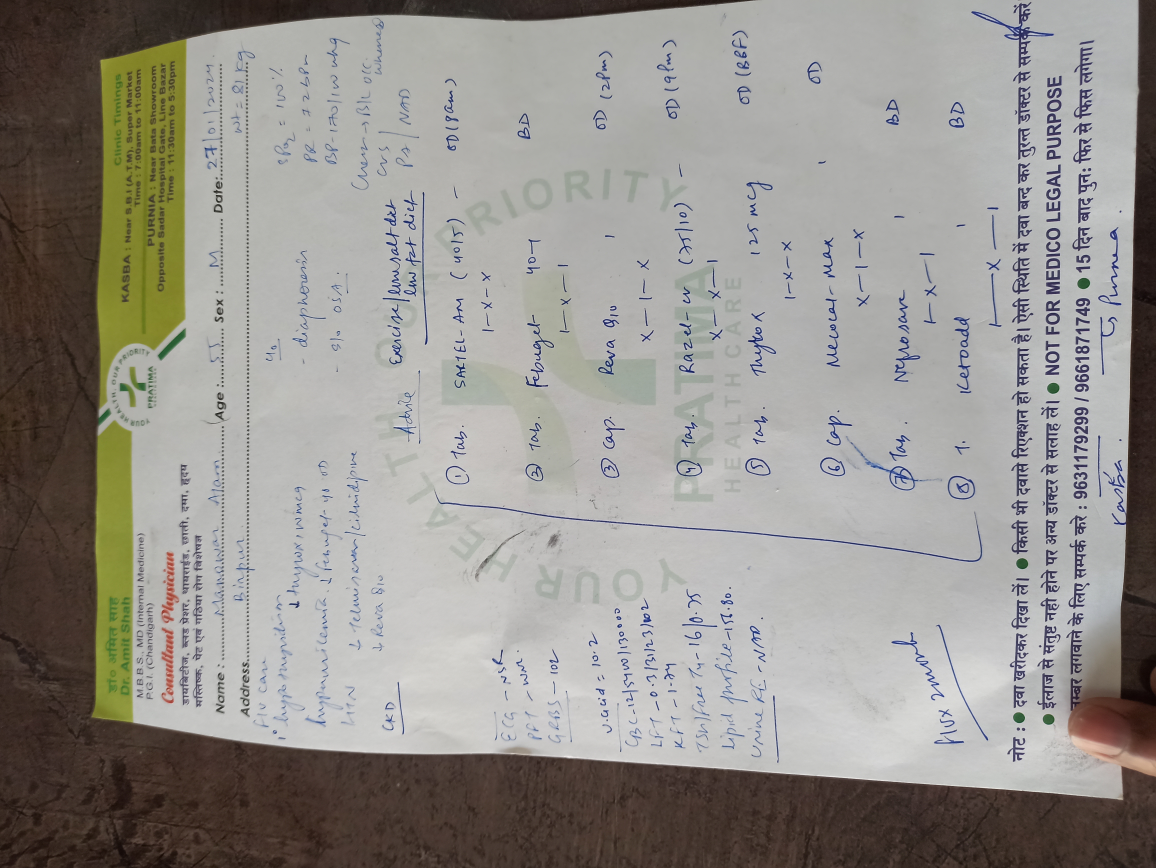 डा० अमित साह
Dr. Amit Shah
M.B.B.S., MD (Internal Medicine)
P.G.I. (Chandigarh)
Consultant Physician
डायबिटीज, ब्लड प्रेशर, थायराईड, छाती, दमा, हृदय
मस्तिष्क, पेट एवं गठिया रोग विशेषज्ञ
YOUR HEALTH OUR PRIORITY
PRATIMA
HEALTH CARE
Clinic Timings
KASBA : Near S.B.I (A.T.M), Super Market
Time : 7:00am to 11:00am
PURNIA : Near Bata Showroom
Opposite Sadar Hospital Gate, Line Bazar
Time : 11:30am to 5:30pm
Name : Alam Age : 55 Sex : M Date: 27/01/2024
Address Wt = 81 kg
SPO2 = 100%
PR = 72 bpm
BP - 170/100 mmhg
Chest → B/L
CVS
PA / NAD
- diaphoresis
- S/O OSA
HTN ↓ Telmisartan/Cilnidipine
↓ Reva Q10
CKD
ECG - NSR
PFT - WNL
GRBS - 102
U.Acid = 10.2
CBC - 12/5400/130000
LFT - 0.3/31/23/102
KFT - 1.74
TSH/Free T4 - 16/0.75
Lipid profile - 156.80
Urine RE - NAD
Advice Exercise/low salt diet
low fat diet
① Tab. SARTEL-AM (40/5) - OD (8am)
1-x-x
② Tab. Febuget 40 - 1 BD
1-x-1
③ Cap. Reva Q10 1 OD (2pm)
x-1-x
④ Tab. Razel-CV (75/10) - OD (9pm)
x-x-1
⑤ Tab. Thyrox 125 mcg OD (BBF)
1-x-x
⑥ Cap. Mecocal-Max 1 OD
x-1-x
⑦ Tab. Nefrosave 1 BD
1-x-1
⑧ T. Ketoadd 1 BD
1-x-1
YOUR HEALTH OUR PRIORITY
PRATIMA
HEALTH CARE
नोट : ● दवा खरीदकर दिखा लें। ● किसी भी दवासे रिएक्शन हो सकता है। ऐसी स्थिति में दवा बन्द कर तुरन्त डॉक्टर से सम्पर्क करें
● ईलाज से संतुष्ट नही होने पर अन्य डॉक्टर से सलाह लें। ● NOT FOR MEDICO LEGAL PURPOSE
नम्बर लगवाने के लिए सम्पर्क करे : 9631179299 / 9661871749 ● 15 दिन बाद पुन: फिर से फिस लगेगा।
Kasba. Purnea.